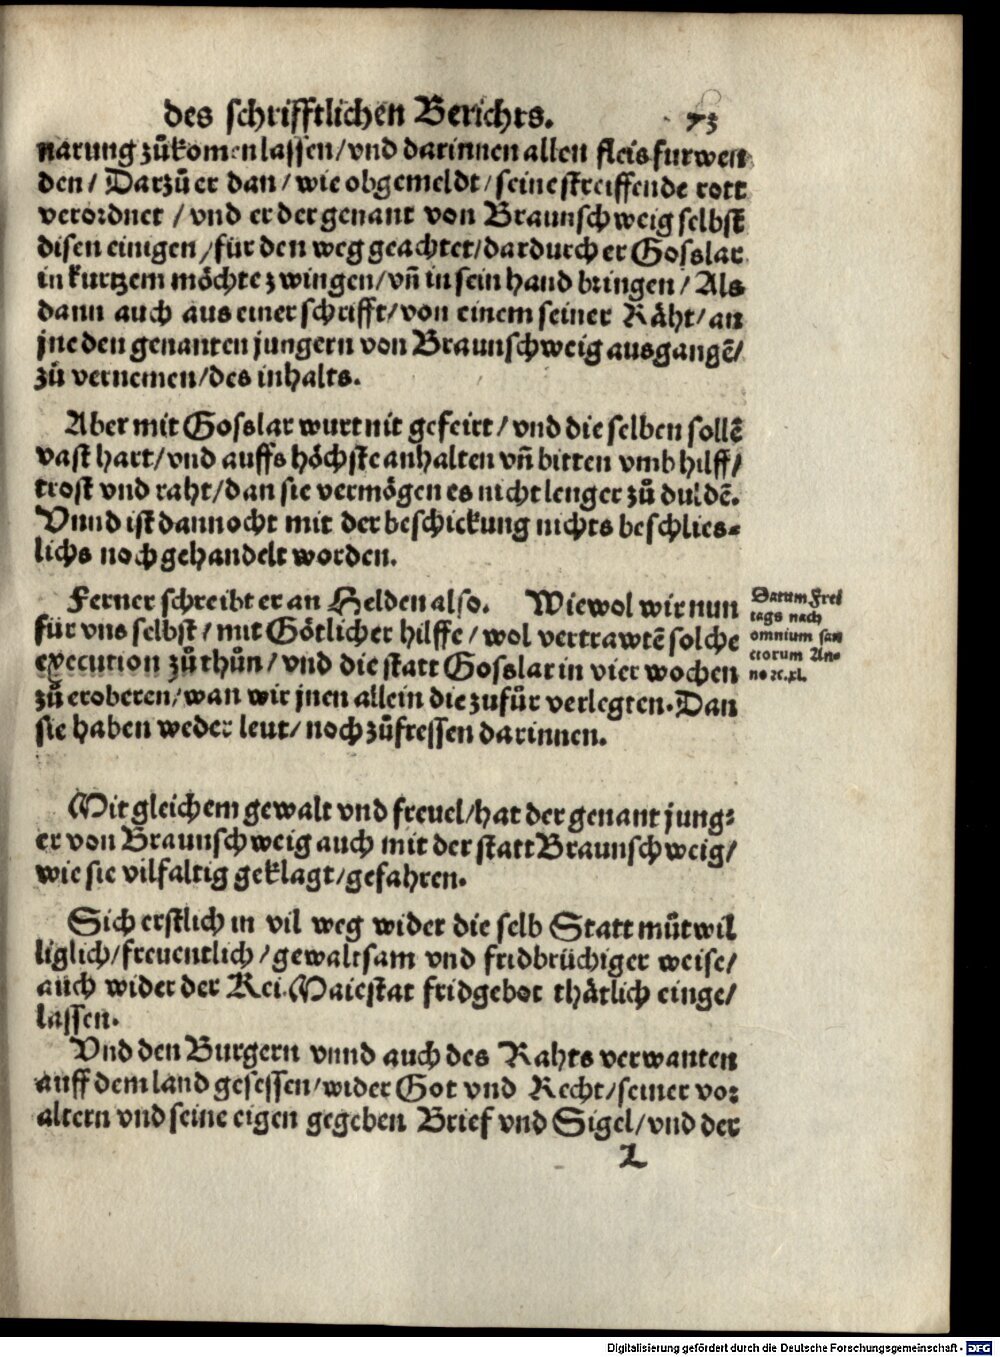 des schrifftlichen Berichts. 73
narung zůkomen lassen/vnd darinnen allen fleis furwen
den/ Darzů er dan/wie obgemeldt/seine streiffende rott
verordnet /vnd er der genant von Braunschweig selbst
disen einigen/für den weg geachtet/dardurch er Gosslar
in kurtzem möchte zwingen/vñ in sein hand bringen/ Als
dann auch aus einer schrifft/von einem seiner Räht/an
jne den genanten jungern von Braunschweig ausgangẽ/
zů vernemen/des inhalts.
Aber mit Gosslar wurt nit gefeirt/vnd die selben sollẽ
vast hart/vnd auffs höchste anhalten vñ bitten vmb hilff/
trost vnd raht/dan sie vermögen es nicht lenger zů duldẽ.
Vnnd ist dannocht mit der beschickung nichts beschlies-
lichs noch gehandelt worden.
Ferner schreibt er an Helden also. Wiewol wir nun
für vns selbst/mit Götlicher hilffe/wol vertrawtẽ solche
execution zů thůn/vnd die statt Gosslar in vier wochen
zů eroberen/wan wir jnen allein die zufůr verlegten. Dan
sie haben weder leut/noch zůfressen darinnen.
Datum Frei
tags nach
omnium san
ctorum An-
no ꝛc. xl.
Mit gleichem gewalt vnd freuel/hat der genant jung-
er von Braunschweig auch mit der statt Braunschweig/
wie sie vilfaltig geklagt/gefahren.
Sich erstlich in vil weg wider die selb Statt můtwil
liglich/freuentlich/gewaltsam vnd fridbrüchiger weise/
auch wider der Kei. Maiestat fridgebot thätlich einge/
lassen.
Vnd den Burgern vnnd auch des Rahts verwanten
auff dem land gesessen/wider Got vnd Recht/seiner vor
altern vnd seine eigen gegeben Brief vnd Sigel/vnd der
L
Digitalisierung gefördert durch die Deutsche Forschungsgemeinschaft - DFG